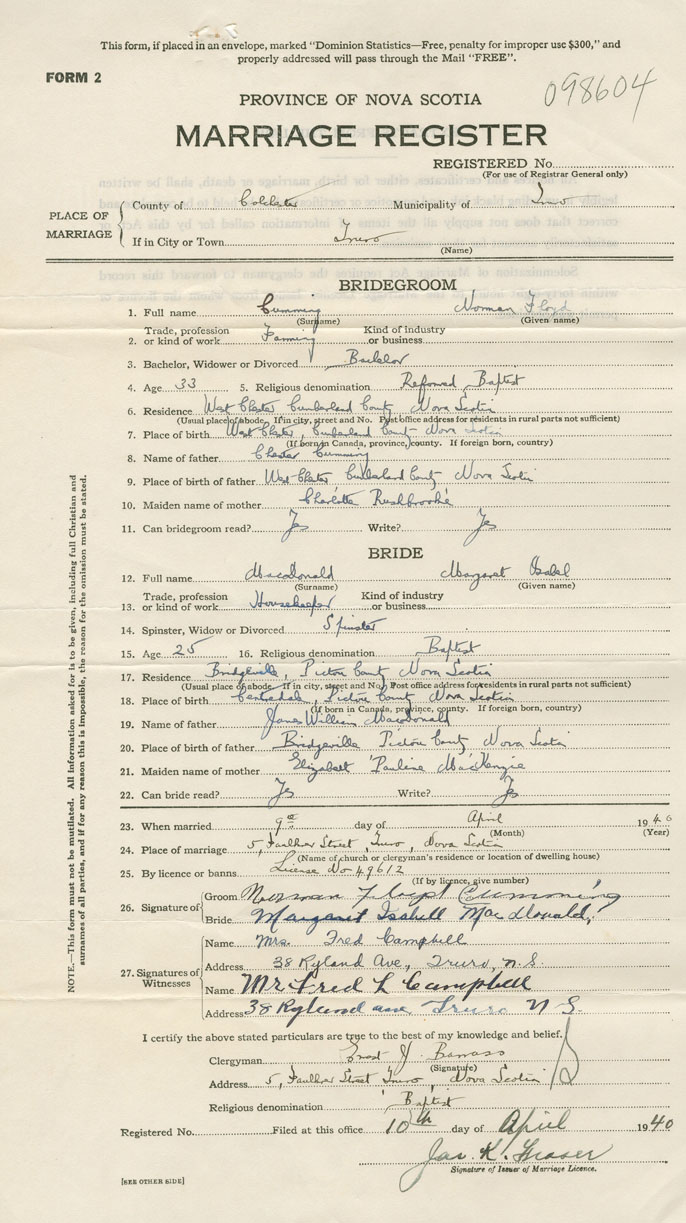 This form, if placed in an envelope, marked "Dominion Statistics—Free, penalty for improper use $300," and
properly addressed will pass through the Mail "FREE".
FORM 2
098604
PROVINCE OF NOVA SCOTIA
MARRIAGE REGISTER
REGISTERED No.
(For use of Registrar General only)
PLACE OF MARRIAGE
County of Colchester Municipality of Truro
If in City or Town Truro
(Name)
BRIDEGROOM
1. Full name Cumming Norman Floyd
(Surname) (Given name)
Trade, profession Kind of industry
2. or kind of work Farming or business
3. Bachelor, Widower or Divorced Bachelor
4. Age 33 5. Religious denomination Reformed Baptist
6. Residence West Chester Cumberland County Nova Scotia
(Usual place of abode. If in city, street and No. Post office address for residents in rural parts not sufficient)
7. Place of birth West Chester, Cumberland County Nova Scotia
(If born in Canada, province, county. If foreign born, country)
8. Name of father Chester Cumming
9. Place of birth of father West Chester Cumberland County Nova Scotia
10. Maiden name of mother Charlotte Rushbrooke
11. Can bridegroom read? Yes Write? Yes
BRIDE
12. Full name MacDonald Margaret Isabel
(Surname) (Given name)
Trade, profession Kind of industry
13. or kind of work Housekeeper or business
14. Spinster, Widow or Divorced Spinster
15. Age 25 16. Religious denomination Baptist
17. Residence Bridgeville, Pictou County Nova Scotia
(Usual place of abode. If in city, street and No. Post office address for residents in rural parts not sufficient)
18. Place of birth Centredale, Pictou County Nova Scotia
(If born in Canada, province, county. If foreign born, country)
19. Name of father James William Macdonald
20. Place of birth of father Bridgeville Pictou County, Nova Scotia
21. Maiden name of mother Elizabeth Pauline MacKenzie
22. Can bride read? Yes Write? Yes
23. When married 9th day of April 1940
(Month) (Year)
24. Place of marriage 5, Faulkner Street, Truro, Nova Scotia
(Name of church or clergyman's residence or location of dwelling house)
25. By licence or banns License No 49612
(If by licence, give number)
26. Signature of
Groom Norman Floyd Cumming
Bride Margaret Isabell MacDonald
27. Signatures of Witnesses
Name Mrs. Fred Campbell
Address 38 Ryland Ave, Truro, N.S.
Name Mr Fred L Campbell
Address 38 Ryland ave Truro N S.
I certify the above stated particulars are true to the best of my knowledge and belief.
Clergyman J.
(Signature)
Address 5, Faulkner Street Truro, Nova Scotia
Religious denomination Baptist
Registered No. Filed at this office 10th day of April 1940
Jas. K. Fraser
Signature of Issuer of Marriage Licence.
[SEE OTHER SIDE]
NOTE.—This form must not be mutilated. All information asked for is to be given, including full Christian and
surnames of all parties, and if for any reason this is impossible, the reason for the omission must be stated.